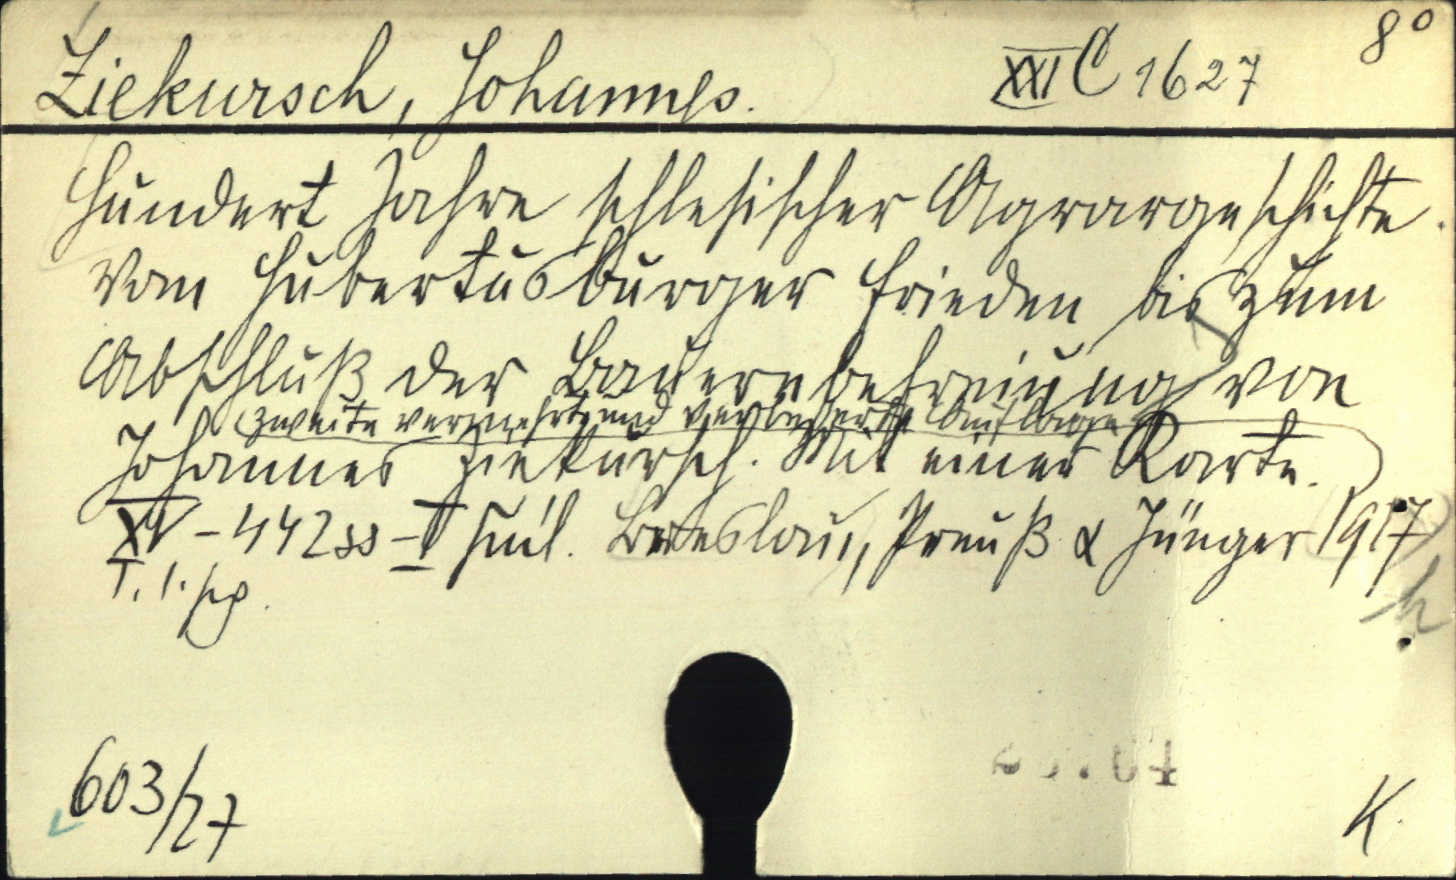 Ziekursch, Johannes.
XXI C 1627
8°
Hundert Jahre schlesischer Agrargeschichte.
Vom Hubertusburger Frieden bis zum
Abschluß der Bauernbefreiung von
(Zweite vermehrte und verbesserte Auflage
Johannes Ziekursch. Mit einer Karte.)
XV - 442 ss - I Breslau, Preuß & Jünger 1917
603/27
K.